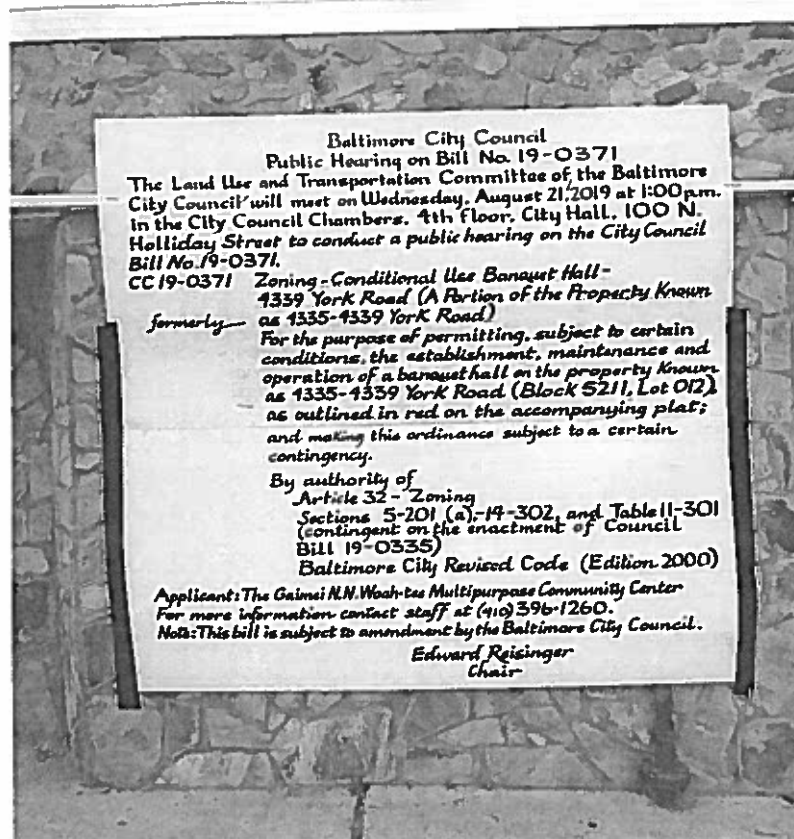 Baltimore City Council
Public Hearing on Bill No. 19-0371
The Land Use and Transportation Committee of the Baltimore
City Council will meet on Wednesday, August 21, 2019 at 1:00 p.m.
in the City Council Chambers, 4th floor, City Hall, 100 N.
Holliday Street to conduct a public hearing on the City Council
Bill No. 19-0371.
CC 19-0371 Zoning-Conditional Use Banquet Hall-
4339 York Road (A Portion of the Property Known
formerly as 4335-4339 York Road)
For the purpose of permitting, subject to certain
conditions, the establishment, maintenance and
operation of a banquet hall on the property known
as 4335-4339 York Road (Block 5211, Lot 012),
as outlined in red on the accompanying plat;
and making this ordinance subject to a certain
contingency.
By authority of
Article 32 - Zoning
Sections 5-201 (a),-14-302, and Table 11-301
(contingent on the enactment of Council
Bill 19-0335)
Baltimore City Revised Code (Edition 2000)
Applicant: The Gaimei N.N. Woah-tee Multipurpose Community Center
For more information contact staff at (410) 396-1260.
Note: This bill is subject to amendment by the Baltimore City Council.
Edward Reisinger
Chair